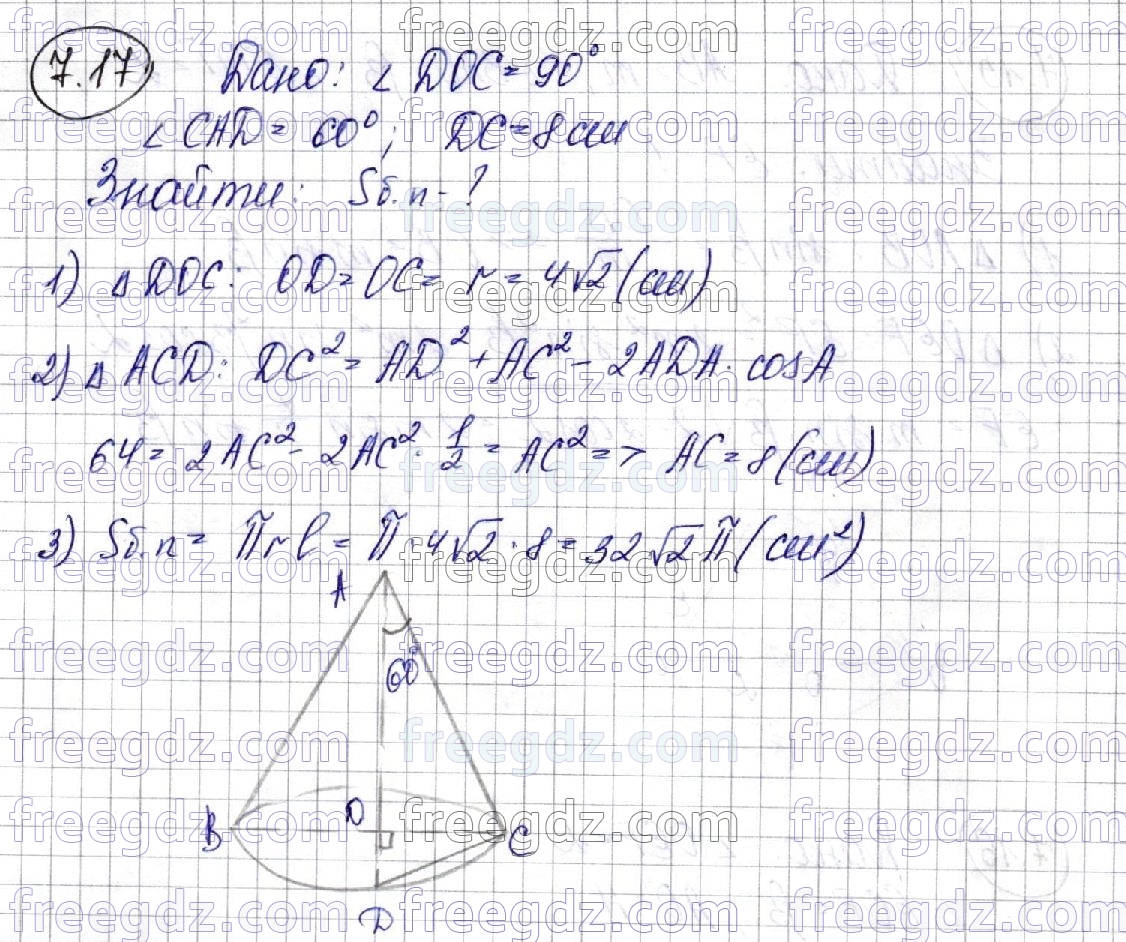 7.17
Дано: ∠ DOC = 90°
∠CAD = 60°; DC = 8 см
Знайти: Sб.п - ?
1) △ DOC: OD = OC = r = 4√2 (см)
2) △ ACD: DC² = AD² + AC² - 2ADA · cosA
64 = 2AC² - 2AC² · 1/2 = AC² => AC = 8 (см)
3) Sб.п = πrl = π · 4√2 · 8 = 32√2 π (см²)
A
60°
B
O
C
D
freegdz.com